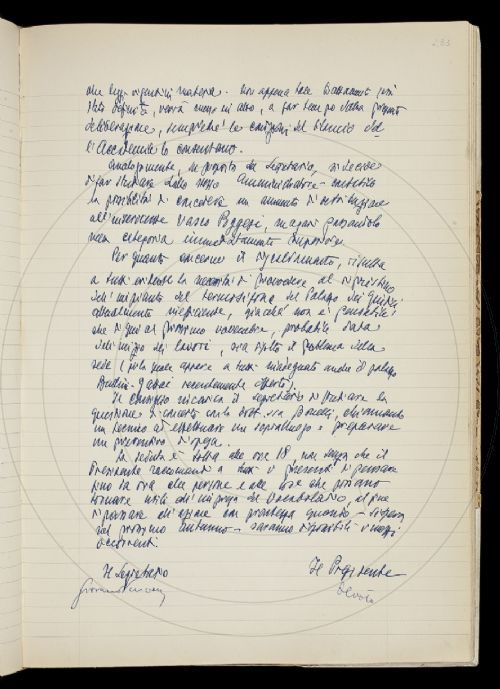 233
alle leggi vigenti in materia. Non appena tale trattamento sarà
stato definito, verrà emessa altro, a far tempo dalla presente
deliberazione, sempreché le condizioni del bilancio del
l'Accademia lo consentano.
Analogamente, su proposta del Segretario, si decide
di far studiare dallo stesso Amministratore-contabile
la possibilità di concedere un aumento di retribuzione
all'inserviente Vasco
nella categoria immediatamente superiore.
Per quanto concerne il riscaldamento, risulta
a tutti evidente la necessità di provvedere al ripristino
dell'impianto del termosifone del Palazzo dei Giudici
attualmente inefficiente, giacché non è pensabile
che di qui al prossimo novembre, probabile data
dell'inizio dei lavori, sia risolto il problema della
sede (per la quale appare a tutti inadeguato anche il palazzo
recentemente offerto).
Il consiglio incarica il Segretario di studiare la
questione di concerto con la dott.ssa chiamando
un tecnico ad effettuare un sopralluogo e preparare
un preventivo di spesa.
La seduta è tolta alle ore 18, non senza che il
Presidente raccomandi a tutti i presenti di pensare
fino da ora alle persone e alle cose che possano
tornare utili all'impresa del Vocabolario, al fine
di passare all'azione con prontezza quando – si spera
nel prossimo autunno – saranno disponibili i mezzi
occorrenti.
Il Segretario Il Presidente
Devoto